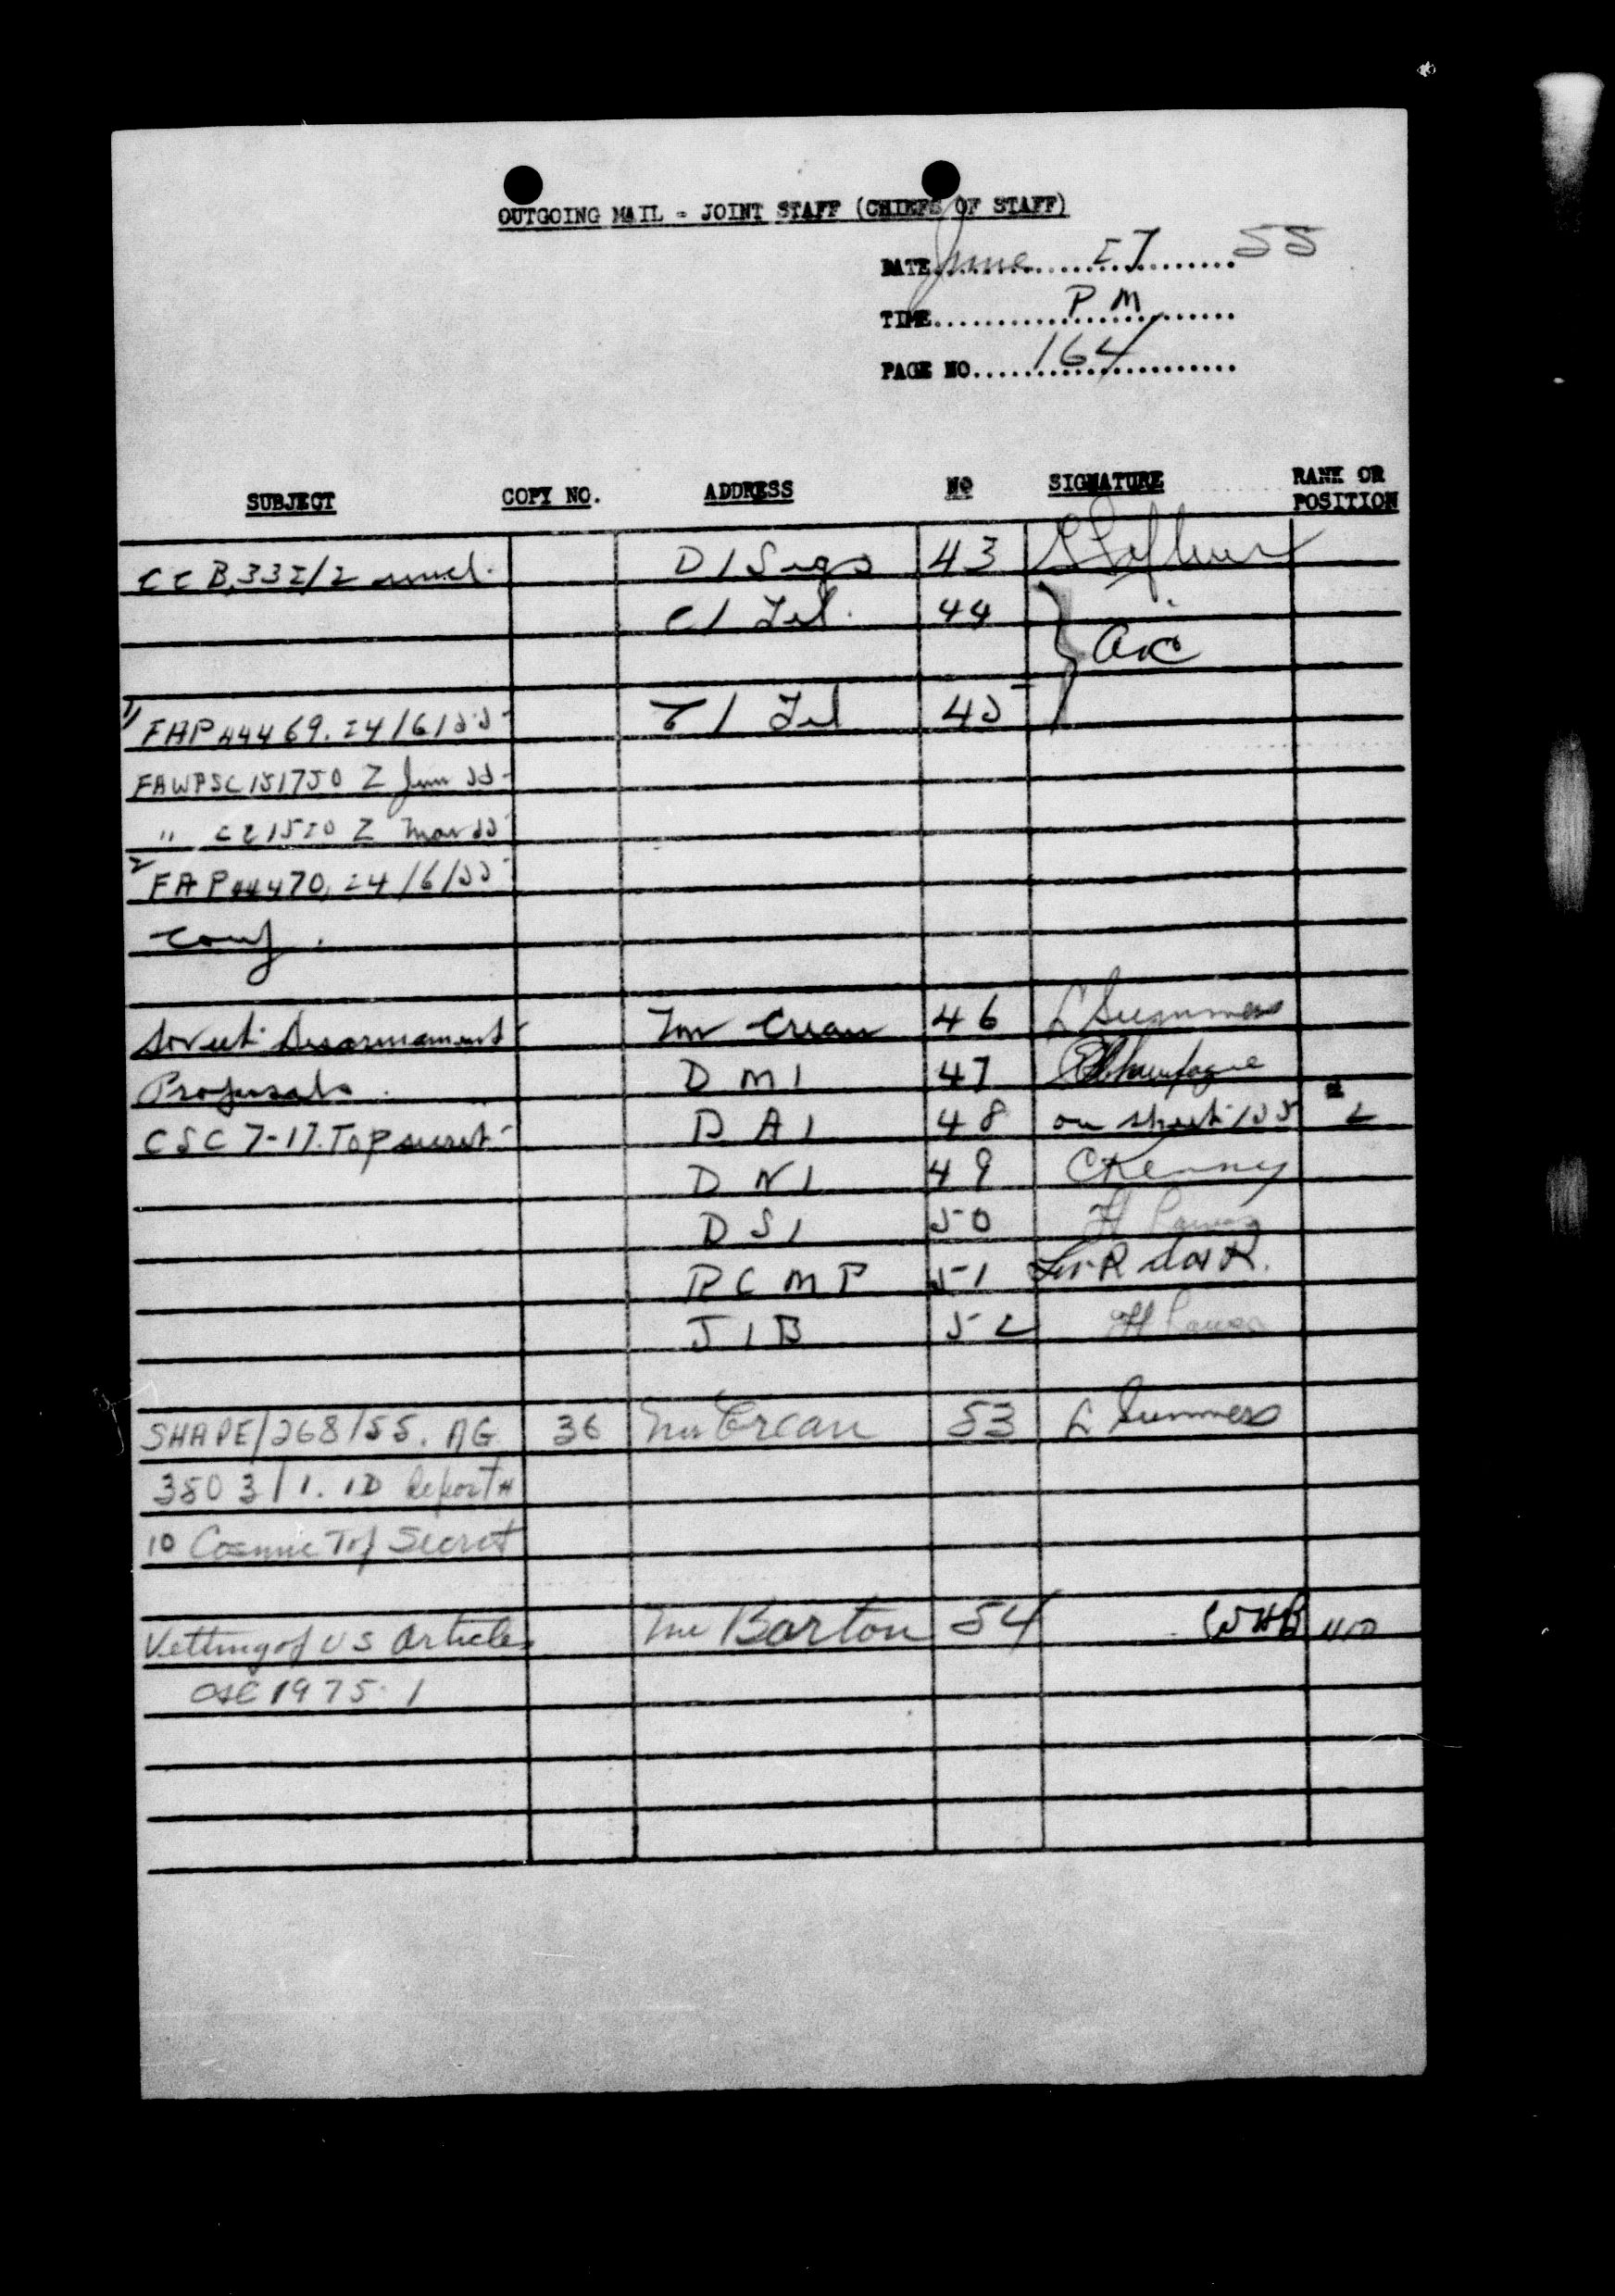 OUTGOING MAIL - JOINT STAFF (CHIEFS OF STAFF)
DATE June 27 55
TIME P M
PAGE NO 164
SUBJECT COPY NO. ADDRESS NO SIGNATURE RANK OR POSITION
CCB.332/2 uncl. D/Sigs 43
C/ Tel. 44
1) FAP 44469. 24/6/55 C/ Tel 45
FAWPSC 151750 Z Jun 55
" 221520 Z Mar 55
2 FAP 44470, 24/6/55
Conf.
Soviet Disarmament Mr Crean 46 L Summers
Proposals. D M I 47 Champagne
CSC 7-17. Top secret D A I 48 on sheet 155 2
D N I 49 C Kenny
D S I 50
R C M P 51
J I B 52
SHAPE/268/55. AG 36 Mr Crean 53 L Summers
3803/1. ID Report #
10 Cosmic Top Secret
Vetting of US Articles Mr Barton 54 WHB
CSC 1975-1